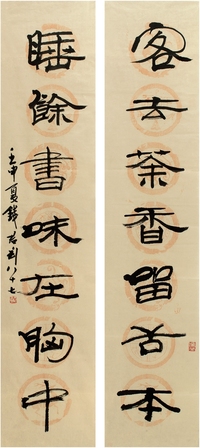 客去茶香留舌本
睡餘書味在胸中
壬申夏錢君匋八十七